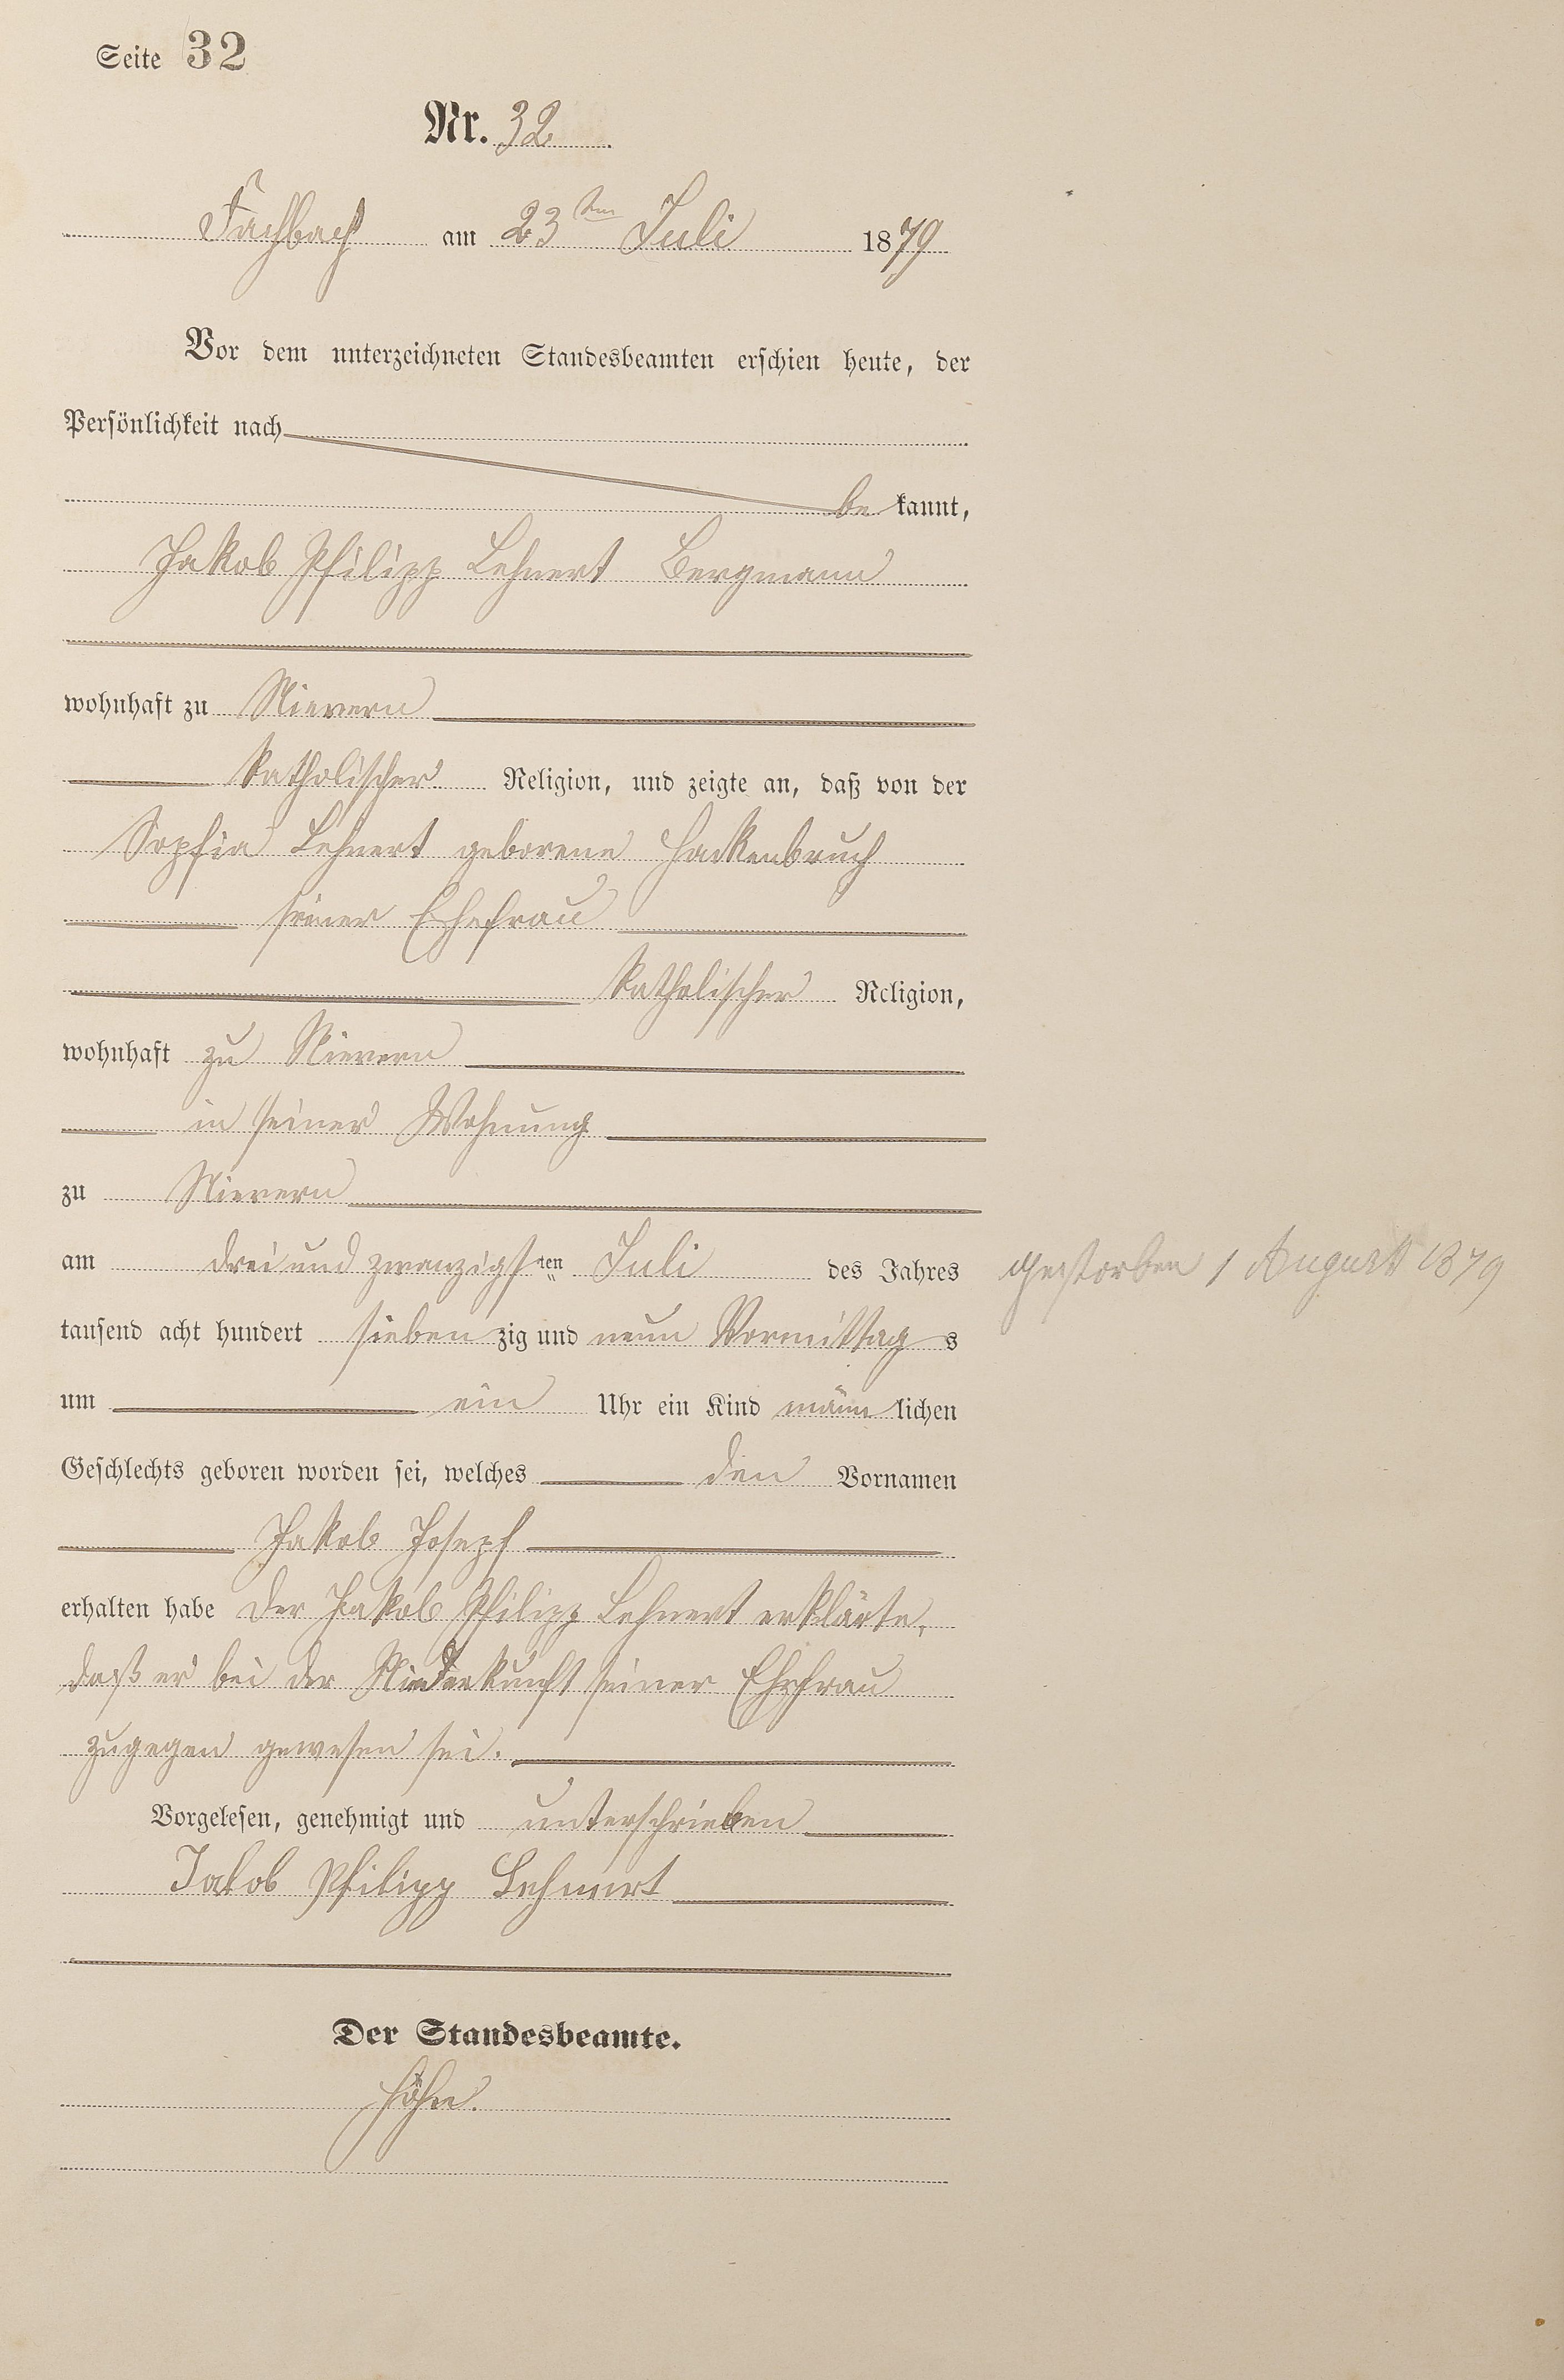 Seite 32
Nr. 32
Fachbach am 23ten Juli 1879
Vor dem unterzeichneten Standesbeamten erschien heute, der
Persönlichkeit nach
be kannt,
Jakob Philipp Lehnert Bergmann
wohnhaft zu Nievern
katholischer Religion, und zeigte an, daß von der
Sophia Lehnert geborene Hackenbruch
seiner Ehefrau
katholischer Religion,
wohnhaft zu Nievern
in seiner Wohnung
zu Nievern
am drei und zwanzigsten Juli des Jahres
gestorben 1 August 1879
tausend acht hundert sieben zig und neun Vormittag s
um ein Uhr ein Kind männ lichen
Geschlechts geboren worden sei, welches den Vornamen
Jakob Joseph
erhalten habe der Jakob Philipp Lehnert erklärte,
daß er bei der Niederkunft seiner Ehefrau
zugegen gewesen sei.
Vorgelesen, genehmigt und unterschrieben
Jakob Philipp Lehnert
Der Standesbeamte.
Höhn.